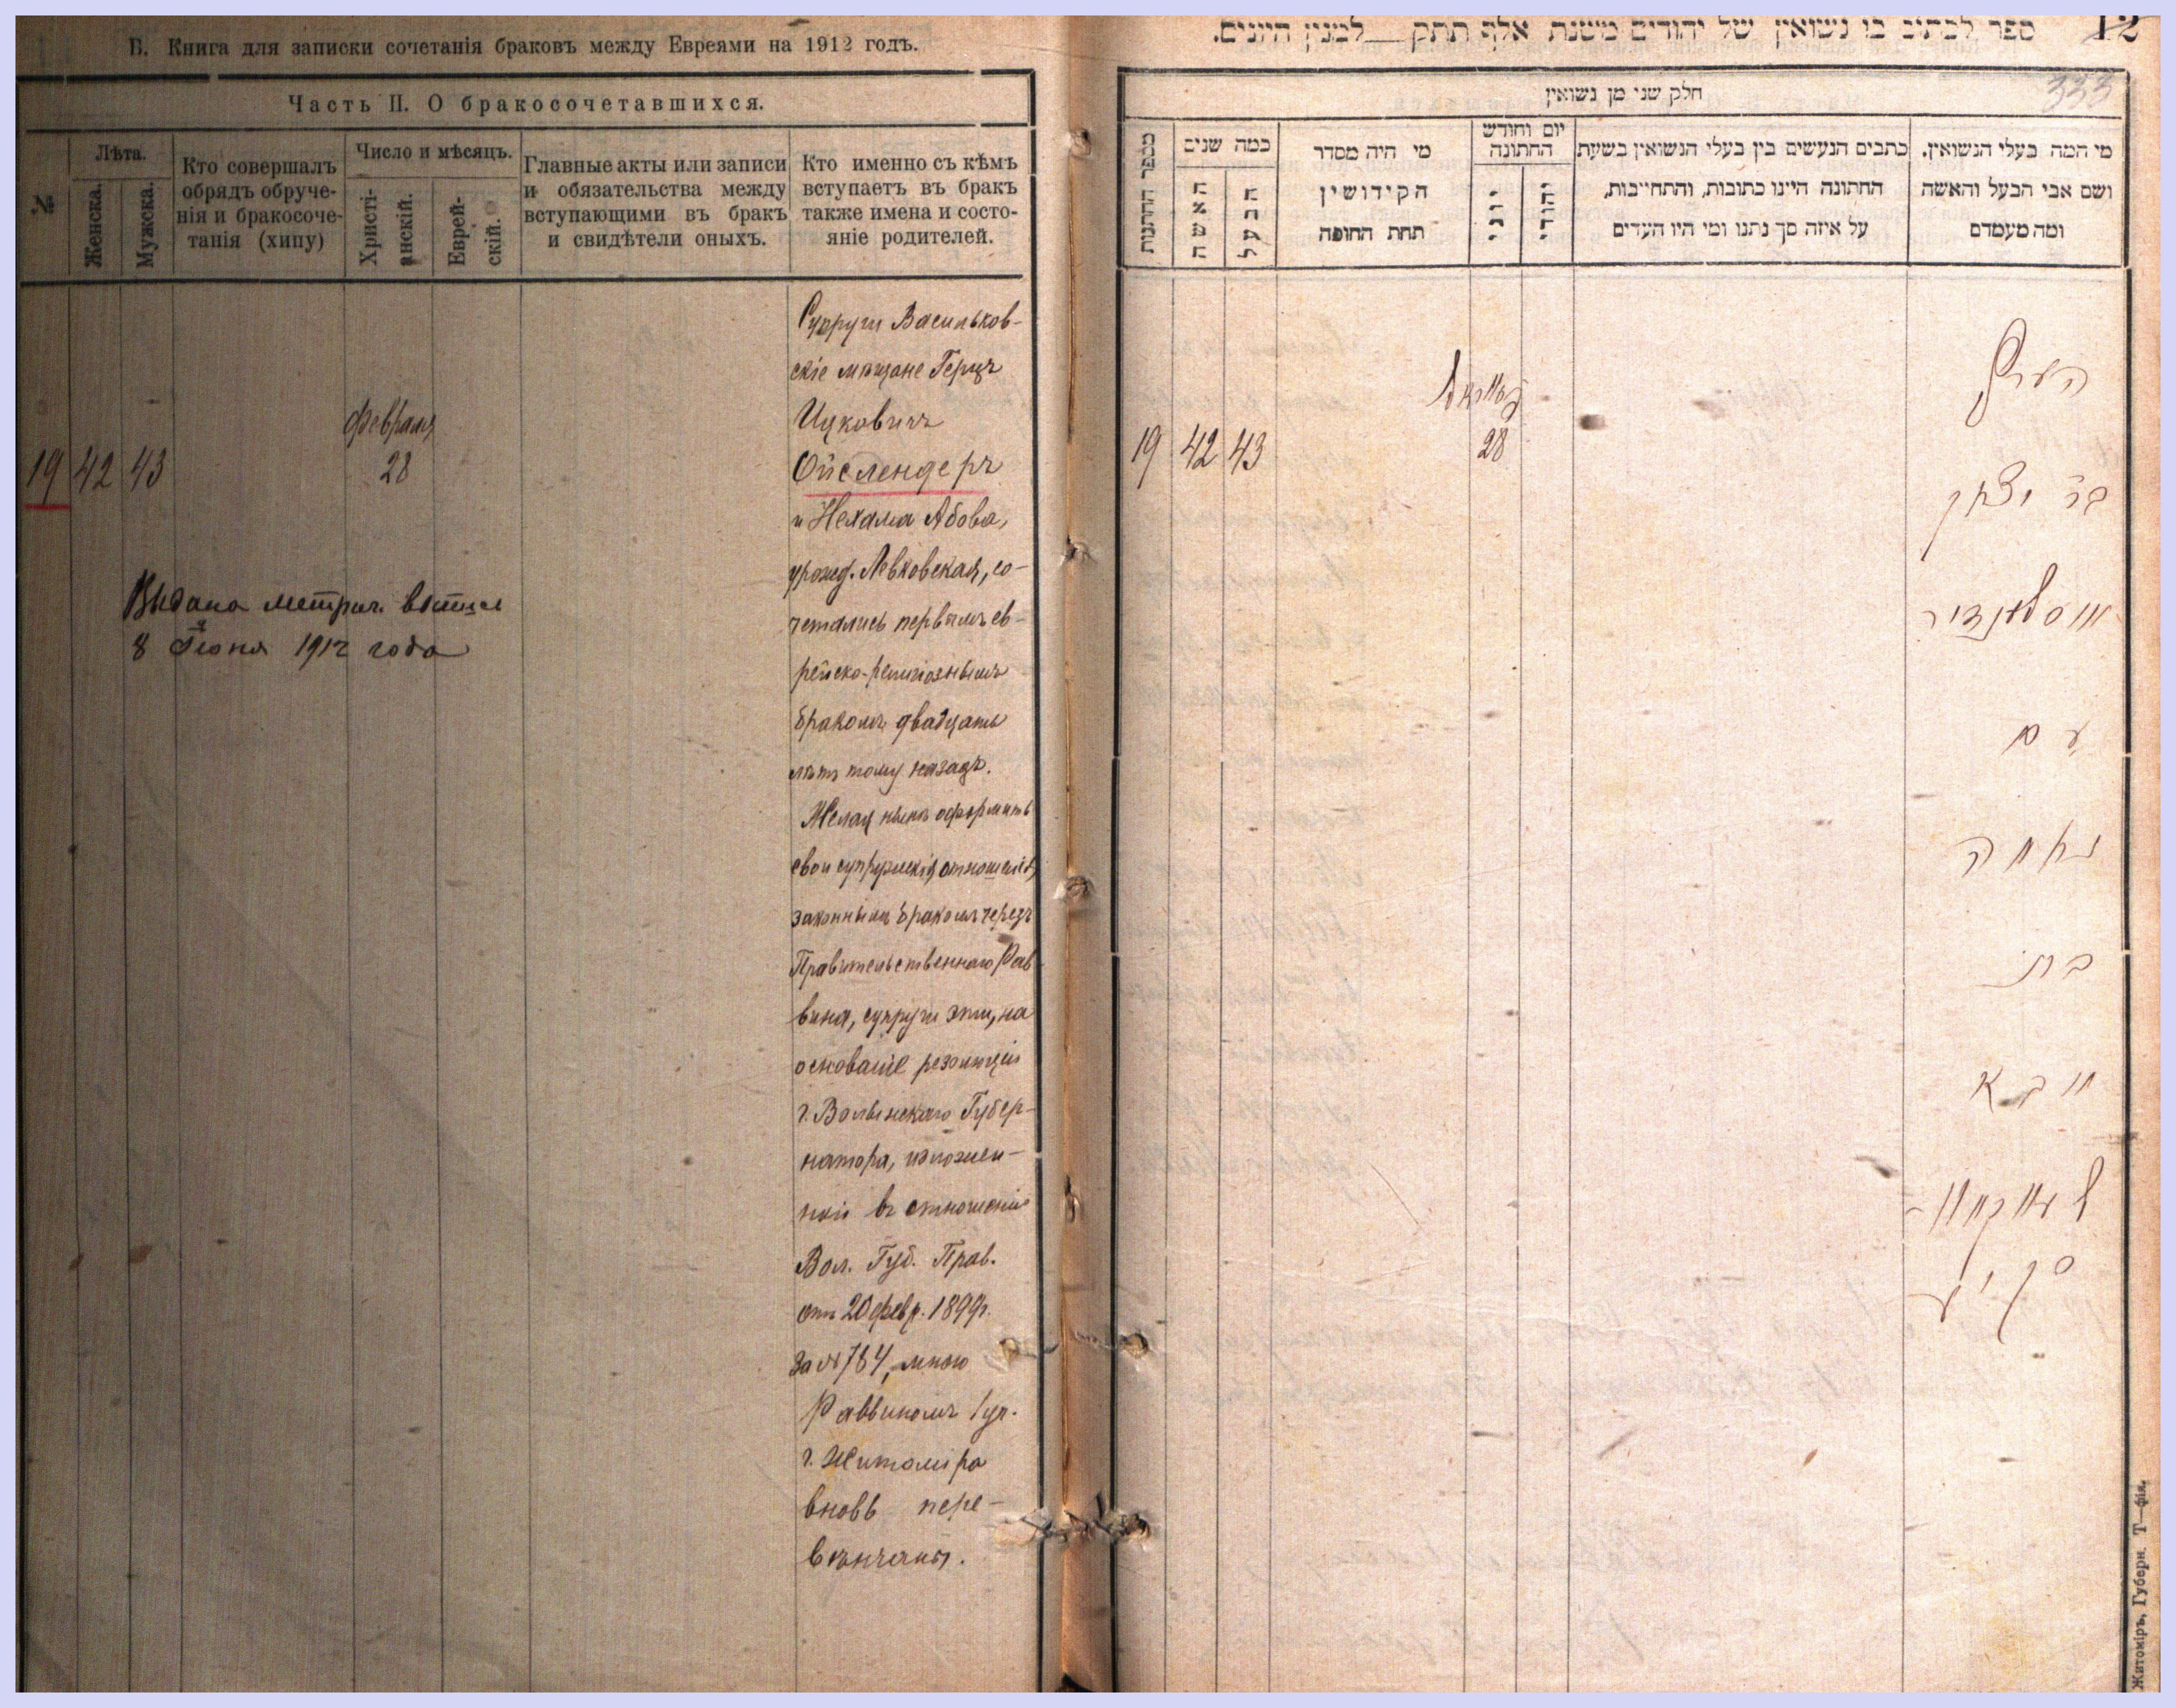 Б. Книга для записки сочетанія браковъ между Евреями на 1912 годъ.
Часть II. О бракосочетавшихся.
№
Лѣта.
Женска.
Мужска.
Кто совершалъ
обрядъ обруче-
нія и бракосоче-
танія (хипу)
Число и мѣсяцъ.
Христі-
анскій.
Еврей-
скій.
Главные акты или записи
и обязательства между
вступающими въ бракъ
и свидѣтели оныхъ.
Кто именно съ кѣмъ
вступаетъ въ бракъ
также имена и состо-
яніе родителей.
19 42 43
Февраля
28
Супруги Васильков-
скіе мѣщане Герцъ
Ицковичъ
Ойслендеръ
и Нехама Абова,
урожд. Левковская, со-
четались первымъ ев-
рейско-религіознымъ
бракомъ двадцать
лѣтъ тому назадъ.
Желая нынѣ оформить
свои супружескія отношенія
законнымъ бракомъ черезъ
Правительственнаго Рав
вина, супруги эти, на
основаніе резолюціи
г. Волынскаго Губер-
натора, изложен-
ной въ отношеніи
Вол. Губ. Прав.
отъ 20 февр. 1899г.
за № 784, мною
Раввиномъ
г. Житомира
вновь пере-
вѣнчаны.
Выдана метрич. выпись
8 Іюня 1912 года
ספר לכתוב בו נשואין של יהודים משנת אלף תתק לממנין היונים.
12
333
חלק שני מן נשואין
מספר החתונות
כמה שנים
האשה
הבעל
מי היה מסדר
הקידושין
תחת החופה
יום וחודש
החתונה
יוני
יהודי
כתבים הנעשים בין בעלי הנשואין בשעת
החתונה היינו כתובות, והתחייבות,
על איזה סך נתנו ומי היו העדים
מי המה בעלי הנשואין.
ושם אבי הבעל והאשה
ומה מעמדם
19 42 43
28
הערץ
בר יצחק
אויסלענדיר
עם
נחמה
בת
אבא
Житомиръ, Губерн. Т—фія.